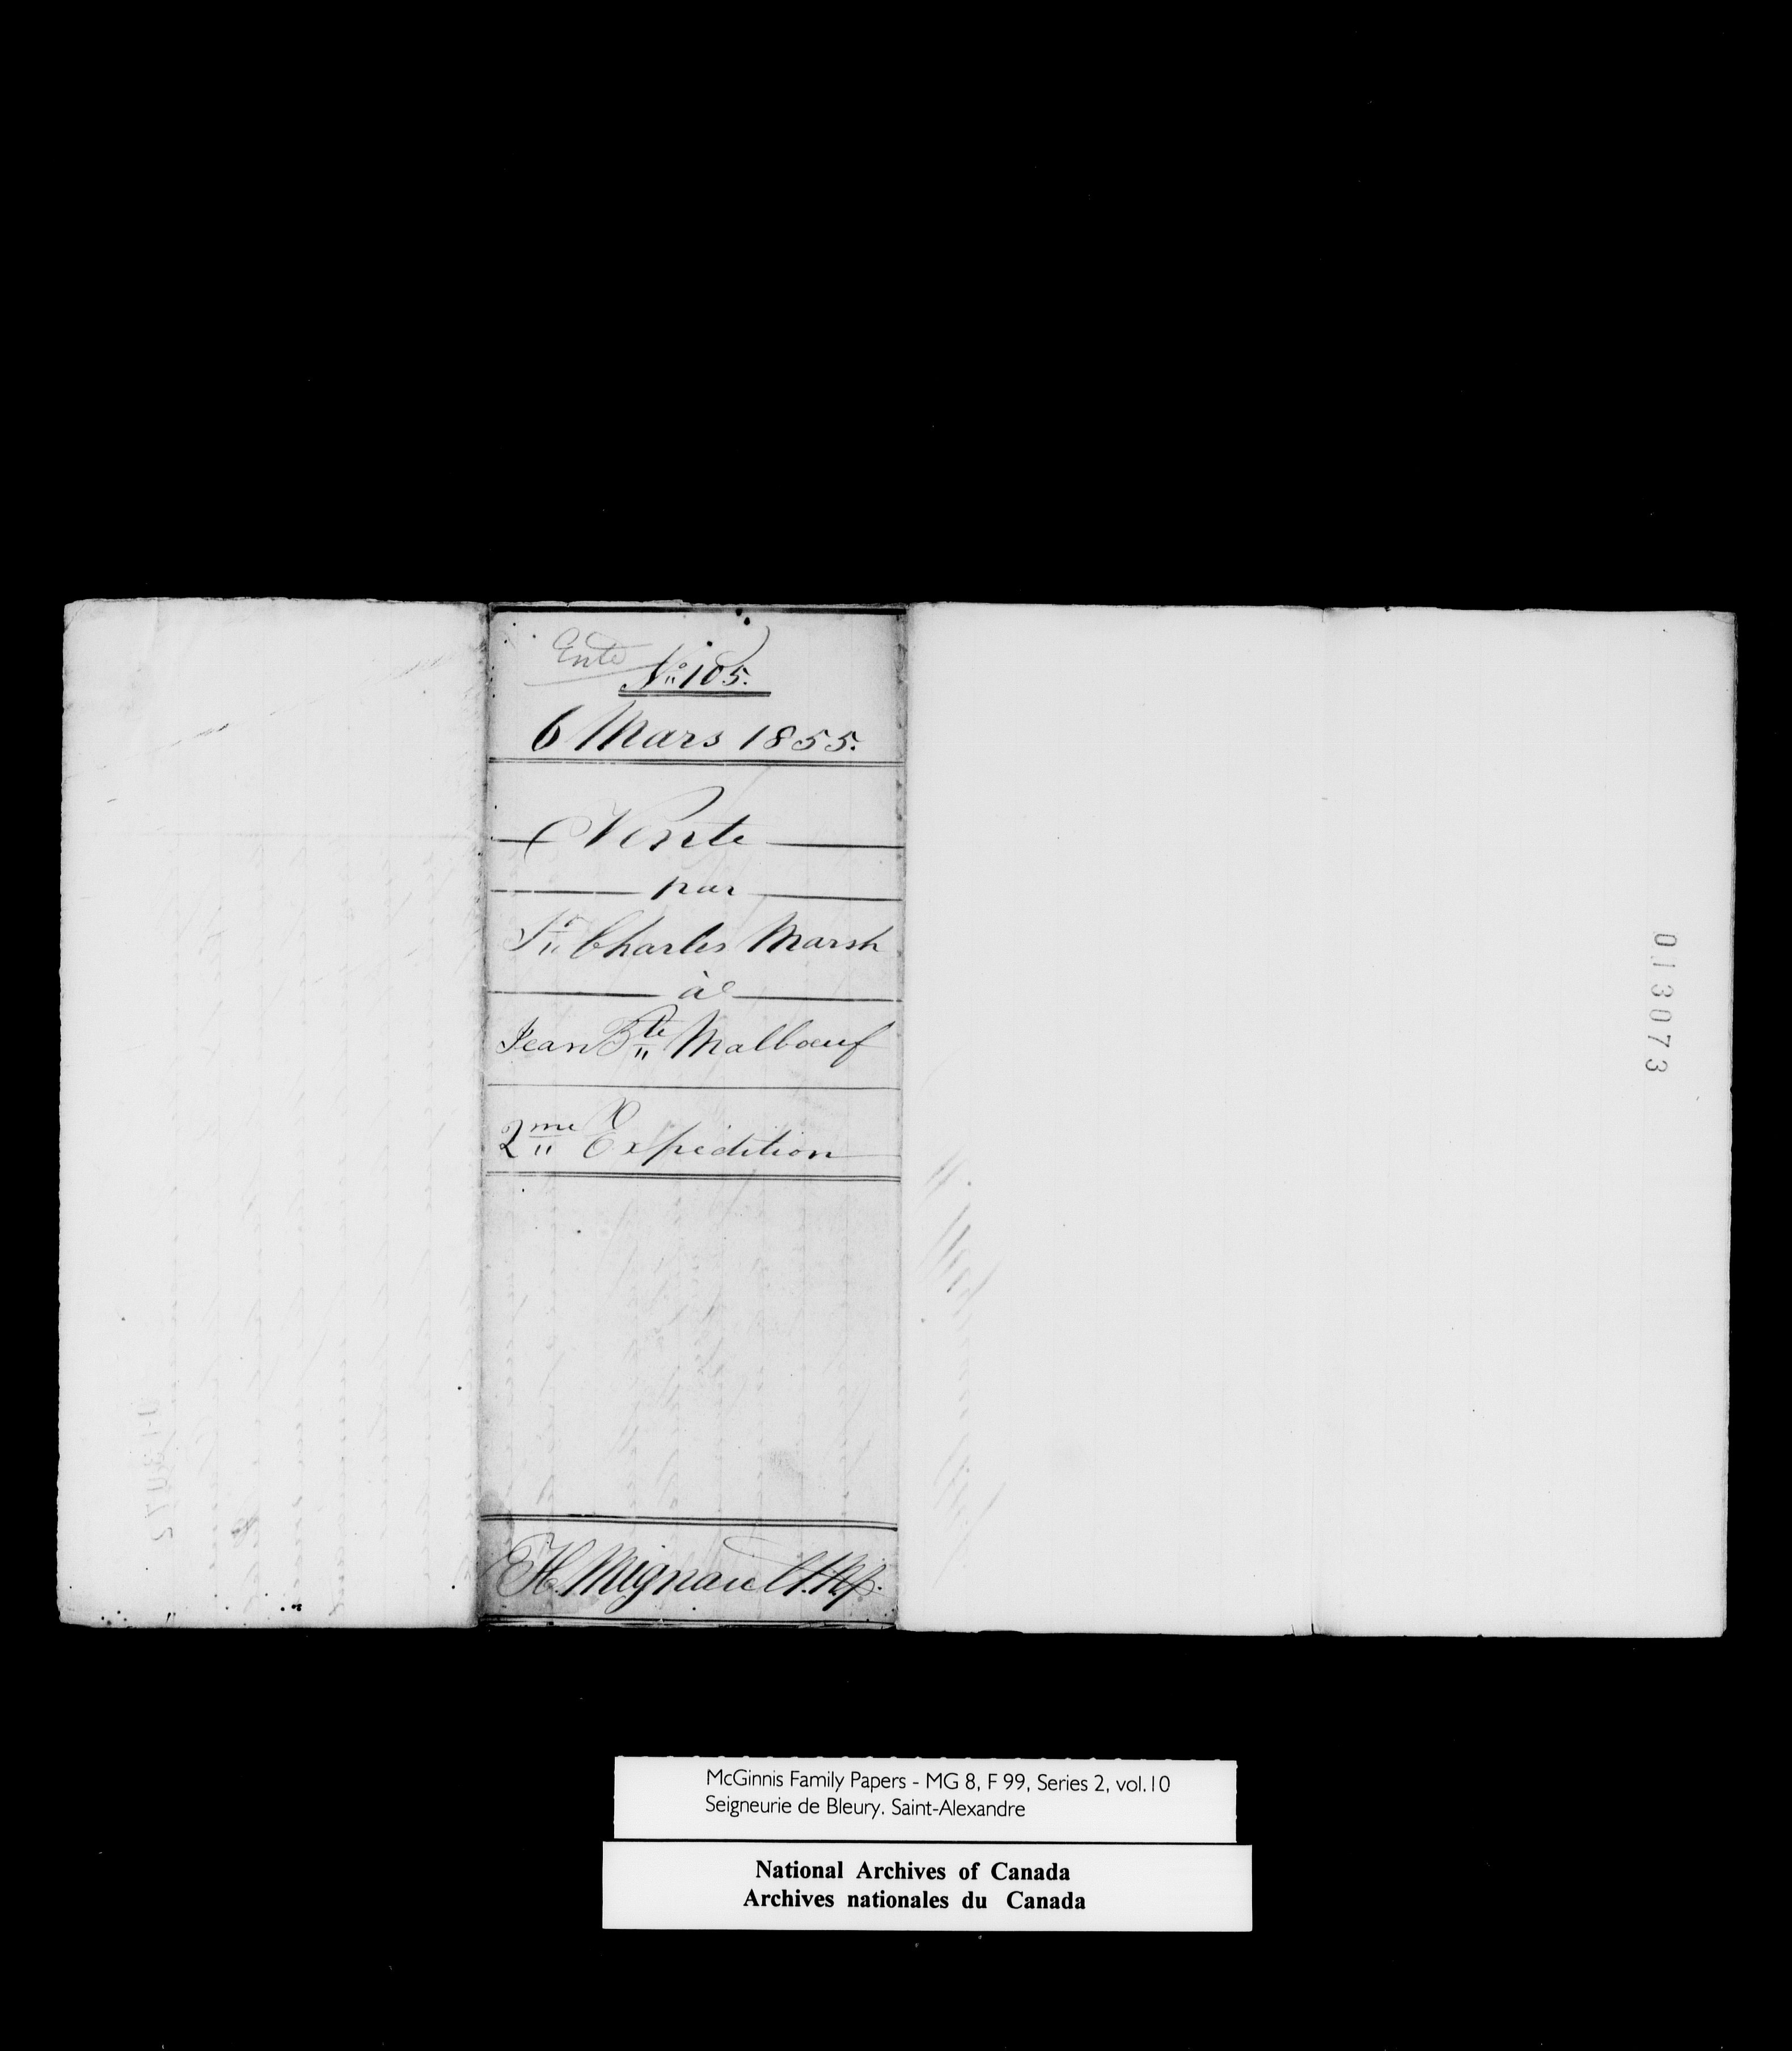 Entd
No 105.
6 Mars 1855.
Vente
par
Sr Charles Marsh
à
Jean Bte Malbœuf
2me Expédition
H. Mignault. N.P.
013073
McGinnis Family Papers - MG 8, F 99, Series 2, vol.10
Seigneurie de Bleury. Saint-Alexandre
National Archives of Canada
Archives nationales du Canada